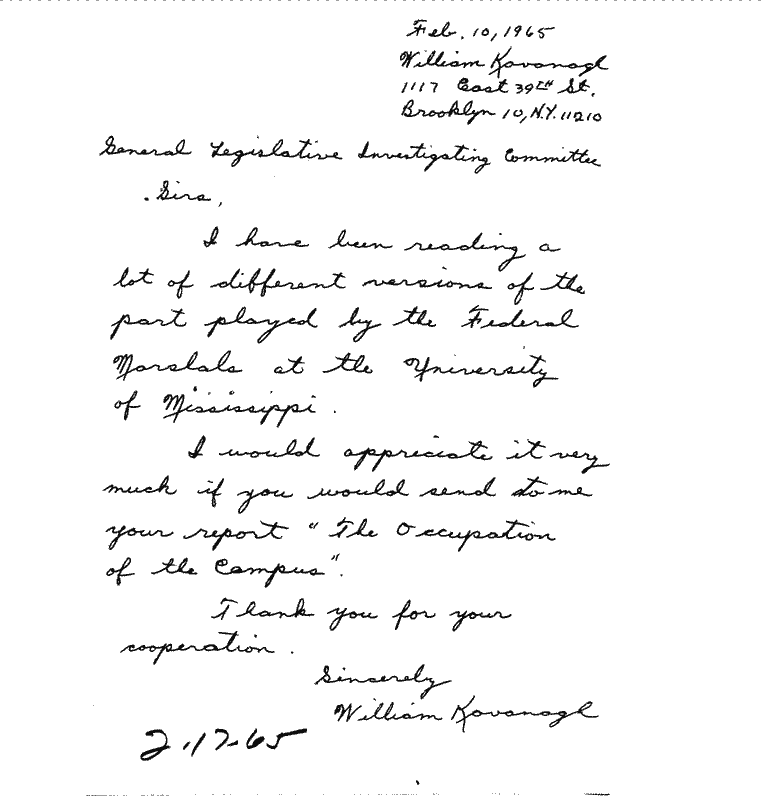 Feb. 10, 1965
William Kavanagh
1117 East 39TH St.
Brooklyn 10, N.Y. 11210
General Legislative Investigating Committee
Sirs,
I have been reading a
lot of different versions of the
part played by the Federal
Marshals at the University
of Mississippi.
I would appreciate it very
much if you would send to me
your report "The Occupation
of the Campus".
Thank you for your
cooperation.
Sincerely
William Kavanagh
2-17-65